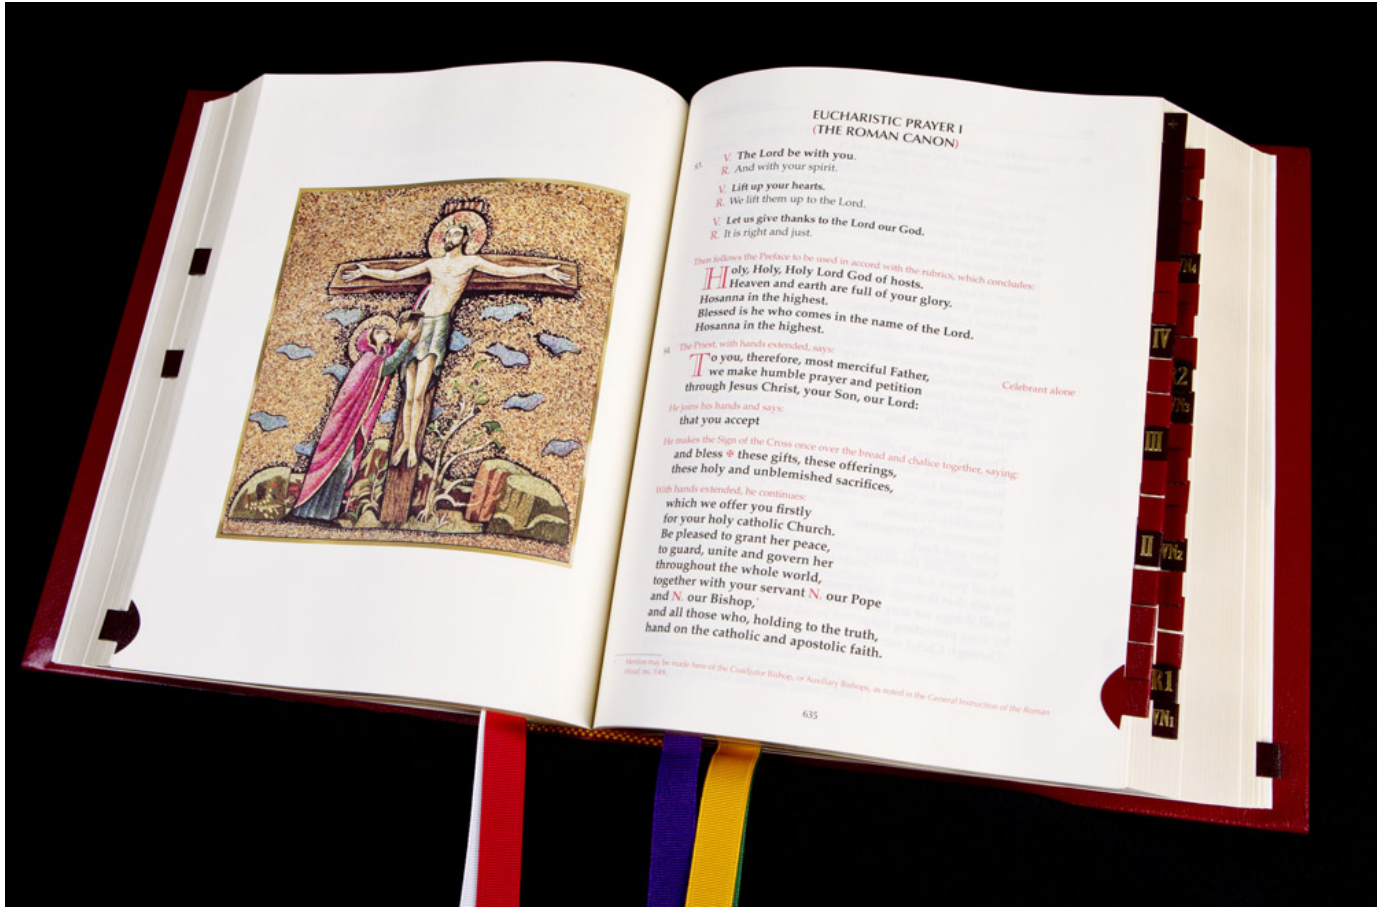 EUCHARISTIC PRAYER I
(THE ROMAN CANON)
V. The Lord be with you.
R. And with your spirit.
V. Lift up your hearts.
R. We lift them up to the Lord.
V. Let us give thanks to the Lord our God.
R. It is right and just.
Then follows the Preface to be used in accord with the rubrics, which concludes:
Holy, Holy, Holy Lord God of hosts.
Heaven and earth are full of your glory.
Hosanna in the highest.
Blessed is he who comes in the name of the Lord.
Hosanna in the highest.
The Priest, with hands extended, says:
To you, therefore, most merciful Father,
we make humble prayer and petition
through Jesus Christ, your Son, our Lord:
Celebrant alone
He joins his hands and says:
that you accept
He makes the Sign of the Cross once over the bread and chalice together, saying:
and bless ✠ these gifts, these offerings,
these holy and unblemished sacrifices,
With hands extended, he continues:
which we offer you firstly
for your holy catholic Church.
Be pleased to grant her peace,
to guard, unite and govern her
throughout the whole world,
together with your servant N. our Pope
and N. our Bishop,*
and all those who, holding to the truth,
hand on the catholic and apostolic faith.
* Mention may be made here of the Coadjutor Bishop, or Auxiliary Bishops, as noted in the General Instruction of the Roman
Missal, no. 149.
635
IV
III
II
VN4
R2
VN3
VN2
R1
VN1